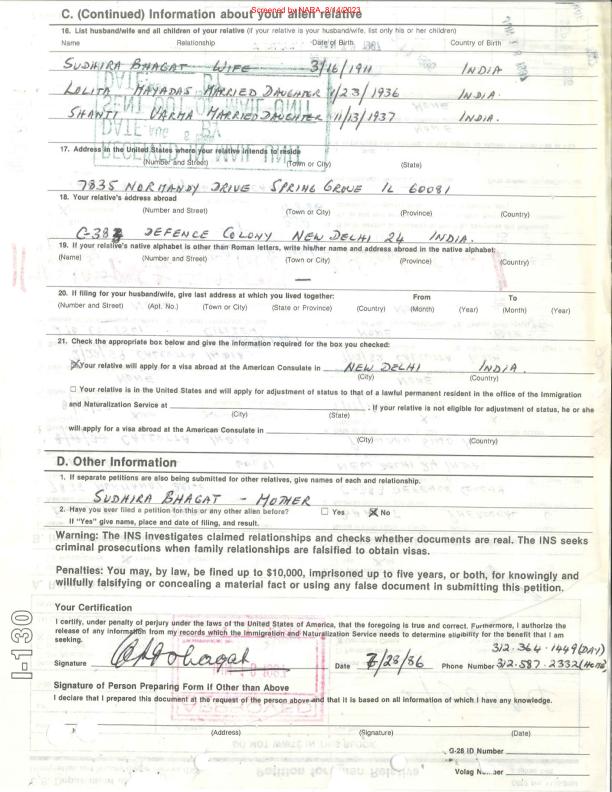 Screened by NARA, 8/14/2023
C. (Continued) Information about your alien relative
16. List husband/wife and all children of your relative (if your relative is your husband/wife, list only his or her children)
Name Relationship Date of Birth Country of Birth
SUDHIRA BHAGAT - WIFE - 3/16/1911 INDIA
LOLITA MAYADAS MARRIED DAUGHTER 1/23/1936 INDIA.
SHANTI VARMA MARRIED DAUGHTER 11/13/1937 INDIA.
17. Address in the United States where your relative intends to reside
(Number and Street) (Town or City) (State)
7835 NORMANDY DRIVE SPRING GROVE IL 60081
18. Your relative's address abroad
(Number and Street) (Town or City) (Province) (Country)
C-383 DEFENCE COLONY NEW DELHI 24 INDIA.
19. If your relative's native alphabet is other than Roman letters, write his/her name and address abroad in the native alphabet:
(Name) (Number and Street) (Town or City) (Province) (Country)
—
20. If filing for your husband/wife, give last address at which you lived together: From To
(Number and Street) (Apt. No.) (Town or City) (State or Province) (Country) (Month) (Year) (Month) (Year)
21. Check the appropriate box below and give the information required for the box you checked:
☒ Your relative will apply for a visa abroad at the American Consulate in NEW DELHI INDIA.
(City) (Country)
☐ Your relative is in the United States and will apply for adjustment of status to that of a lawful permanent resident in the office of the Immigration
and Naturalization Service at . If your relative is not eligible for adjustment of status, he or she
(City) (State)
will apply for a visa abroad at the American Consulate in
(City) (Country)
D. Other Information
1. If separate petitions are also being submitted for other relatives, give names of each and relationship.
SUDHIRA BHAGAT - MOTHER
2. Have you ever filed a petition for this or any other alien before? ☐ Yes ☒ No
If "Yes" give name, place and date of filing, and result.
Warning: The INS investigates claimed relationships and checks whether documents are real. The INS seeks
criminal prosecutions when family relationships are falsified to obtain visas.
Penalties: You may, by law, be fined up to $10,000, imprisoned up to five years, or both, for knowingly and
willfully falsifying or concealing a material fact or using any false document in submitting this petition.
Your Certification
I certify, under penalty of perjury under the laws of the United States of America, that the foregoing is true and correct. Furthermore, I authorize the
release of any information from my records which the Immigration and Naturalization Service needs to determine eligibility for the benefit that I am
seeking.
312.364.1449(DAY)
Signature Date 7/28/86 Phone Number 312.587.2332(HOME)
Signature of Person Preparing Form if Other than Above
I declare that I prepared this document at the request of the person above and that it is based on all information of which I have any knowledge.
(Address) (Signature) (Date)
G-28 ID Number
Volag Number
I-130